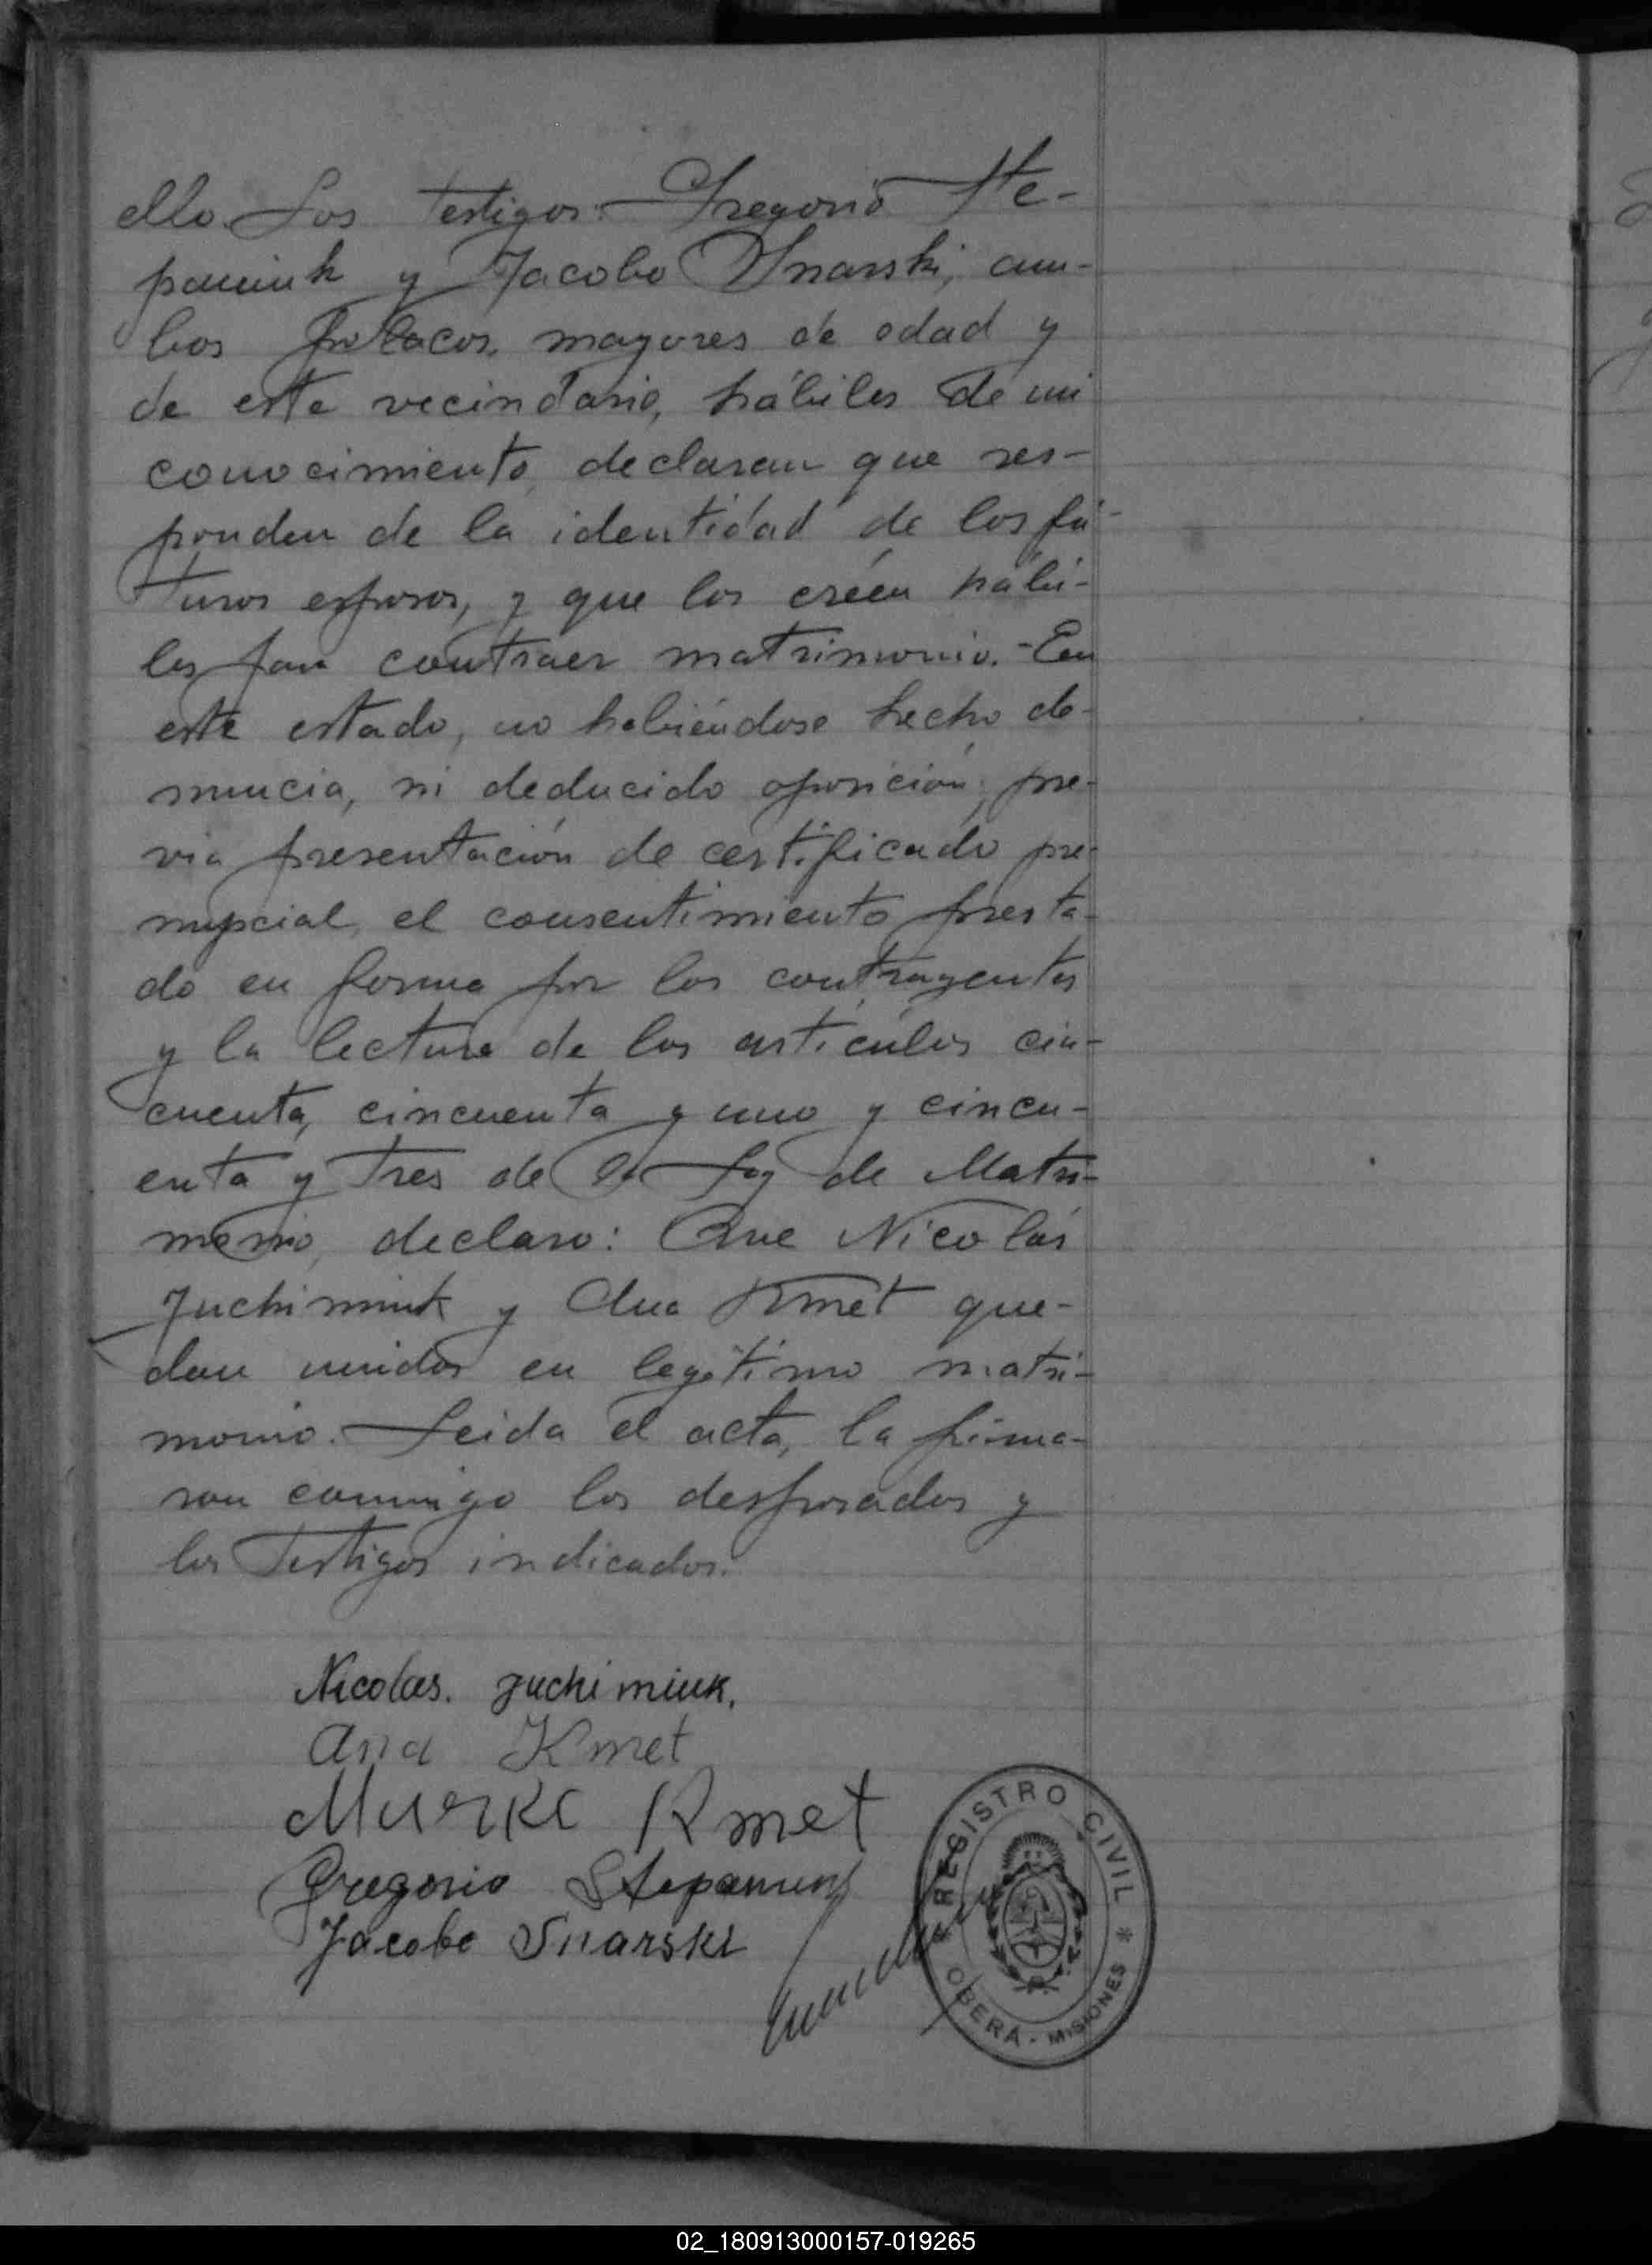 ello. Los testigos: Gregorio Ste-
paniuk y Jacobo Snarski, am-
bos polacos, mayores de edad y
de este vecindario, hábiles de mi
conocimiento, declaran que res-
ponden de la identidad de los fu-
turos esposos, y que los créen hábi-
les para contraer matrimonio. - En
este estado, no habiéndose hecho de-
nuncia, ni deducido oposición, pre-
via presentación de certificado pre-
nupcial, el consentimiento presta-
do en forma por los contrayentes
y la lectura de los artículos cin-
cuenta, cincuenta y uno y cincu-
enta y tres de la Ley de Matri-
monio, declaro: Que Nicolás
Juchimiuk y Ana Kmet que-
dan unidos en legítimo matri-
monio. Leida el acta, la firma-
ron conmigo los desposados y
los testigos indicados.
Nicolas. Juchimiuk.
Ana Kmet
Kmet
Gregorio Stepaniuk
Jacobo Snarski
REGISTRO CIVIL
* OBERÁ - MISIONES *
02_180913000157-019265